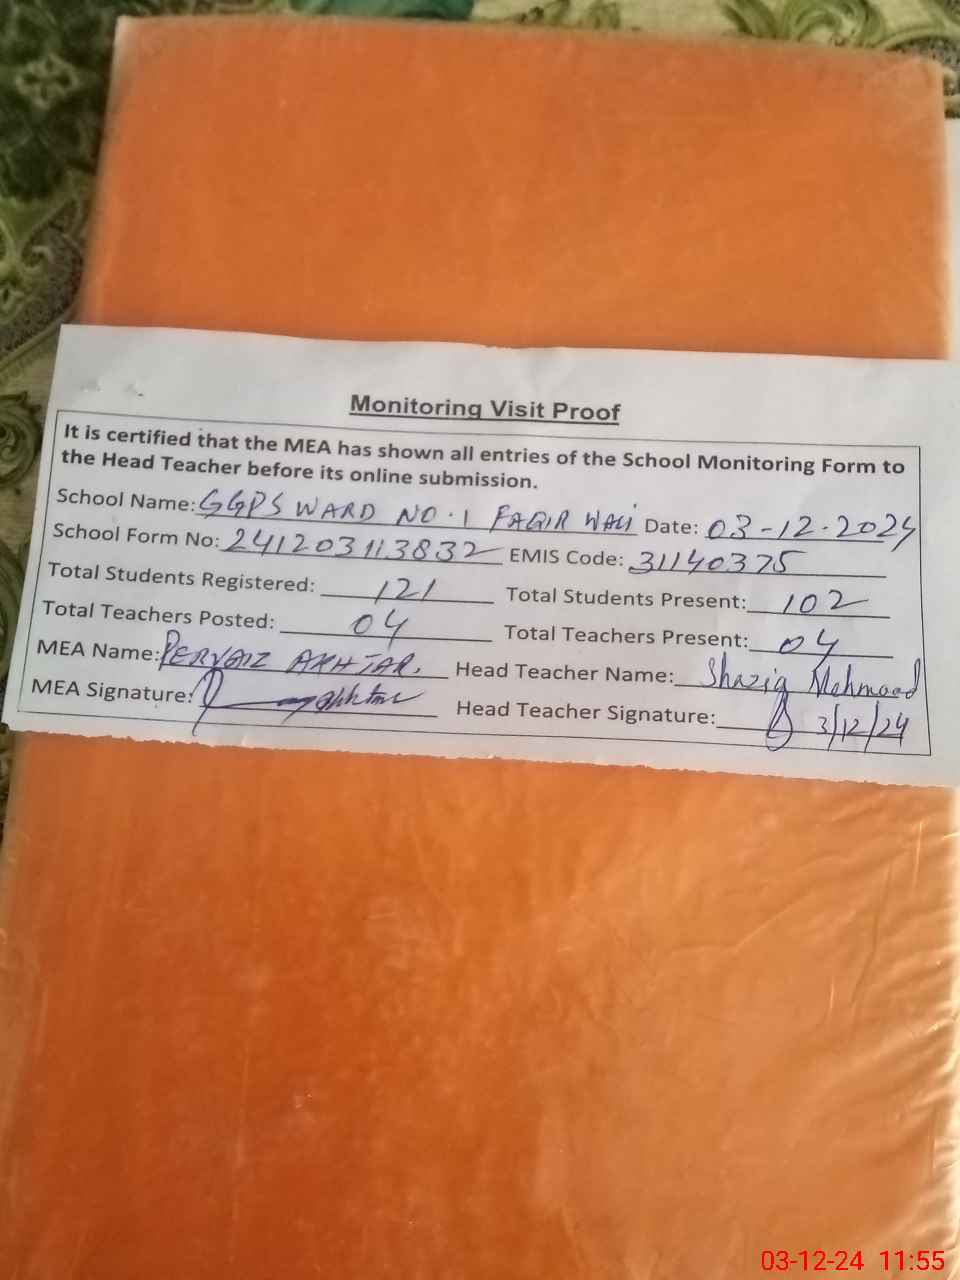 Monitoring Visit Proof
It is certified that the MEA has shown all entries of the School Monitoring Form to
the Head Teacher before its online submission.
School Name: GGPS WARD NO.1 FAQIR WALI Date: 03-12-2024
School Form No: 241203113832 EMIS Code: 31140375
Total Students Registered: 121 Total Students Present: 102
Total Teachers Posted: 04 Total Teachers Present: 04
MEA Name: PERVAIZ AKHTAR. Head Teacher Name: Shazia Mehmood
MEA Signature: Head Teacher Signature: 3/12/24
03-12-24 11:55